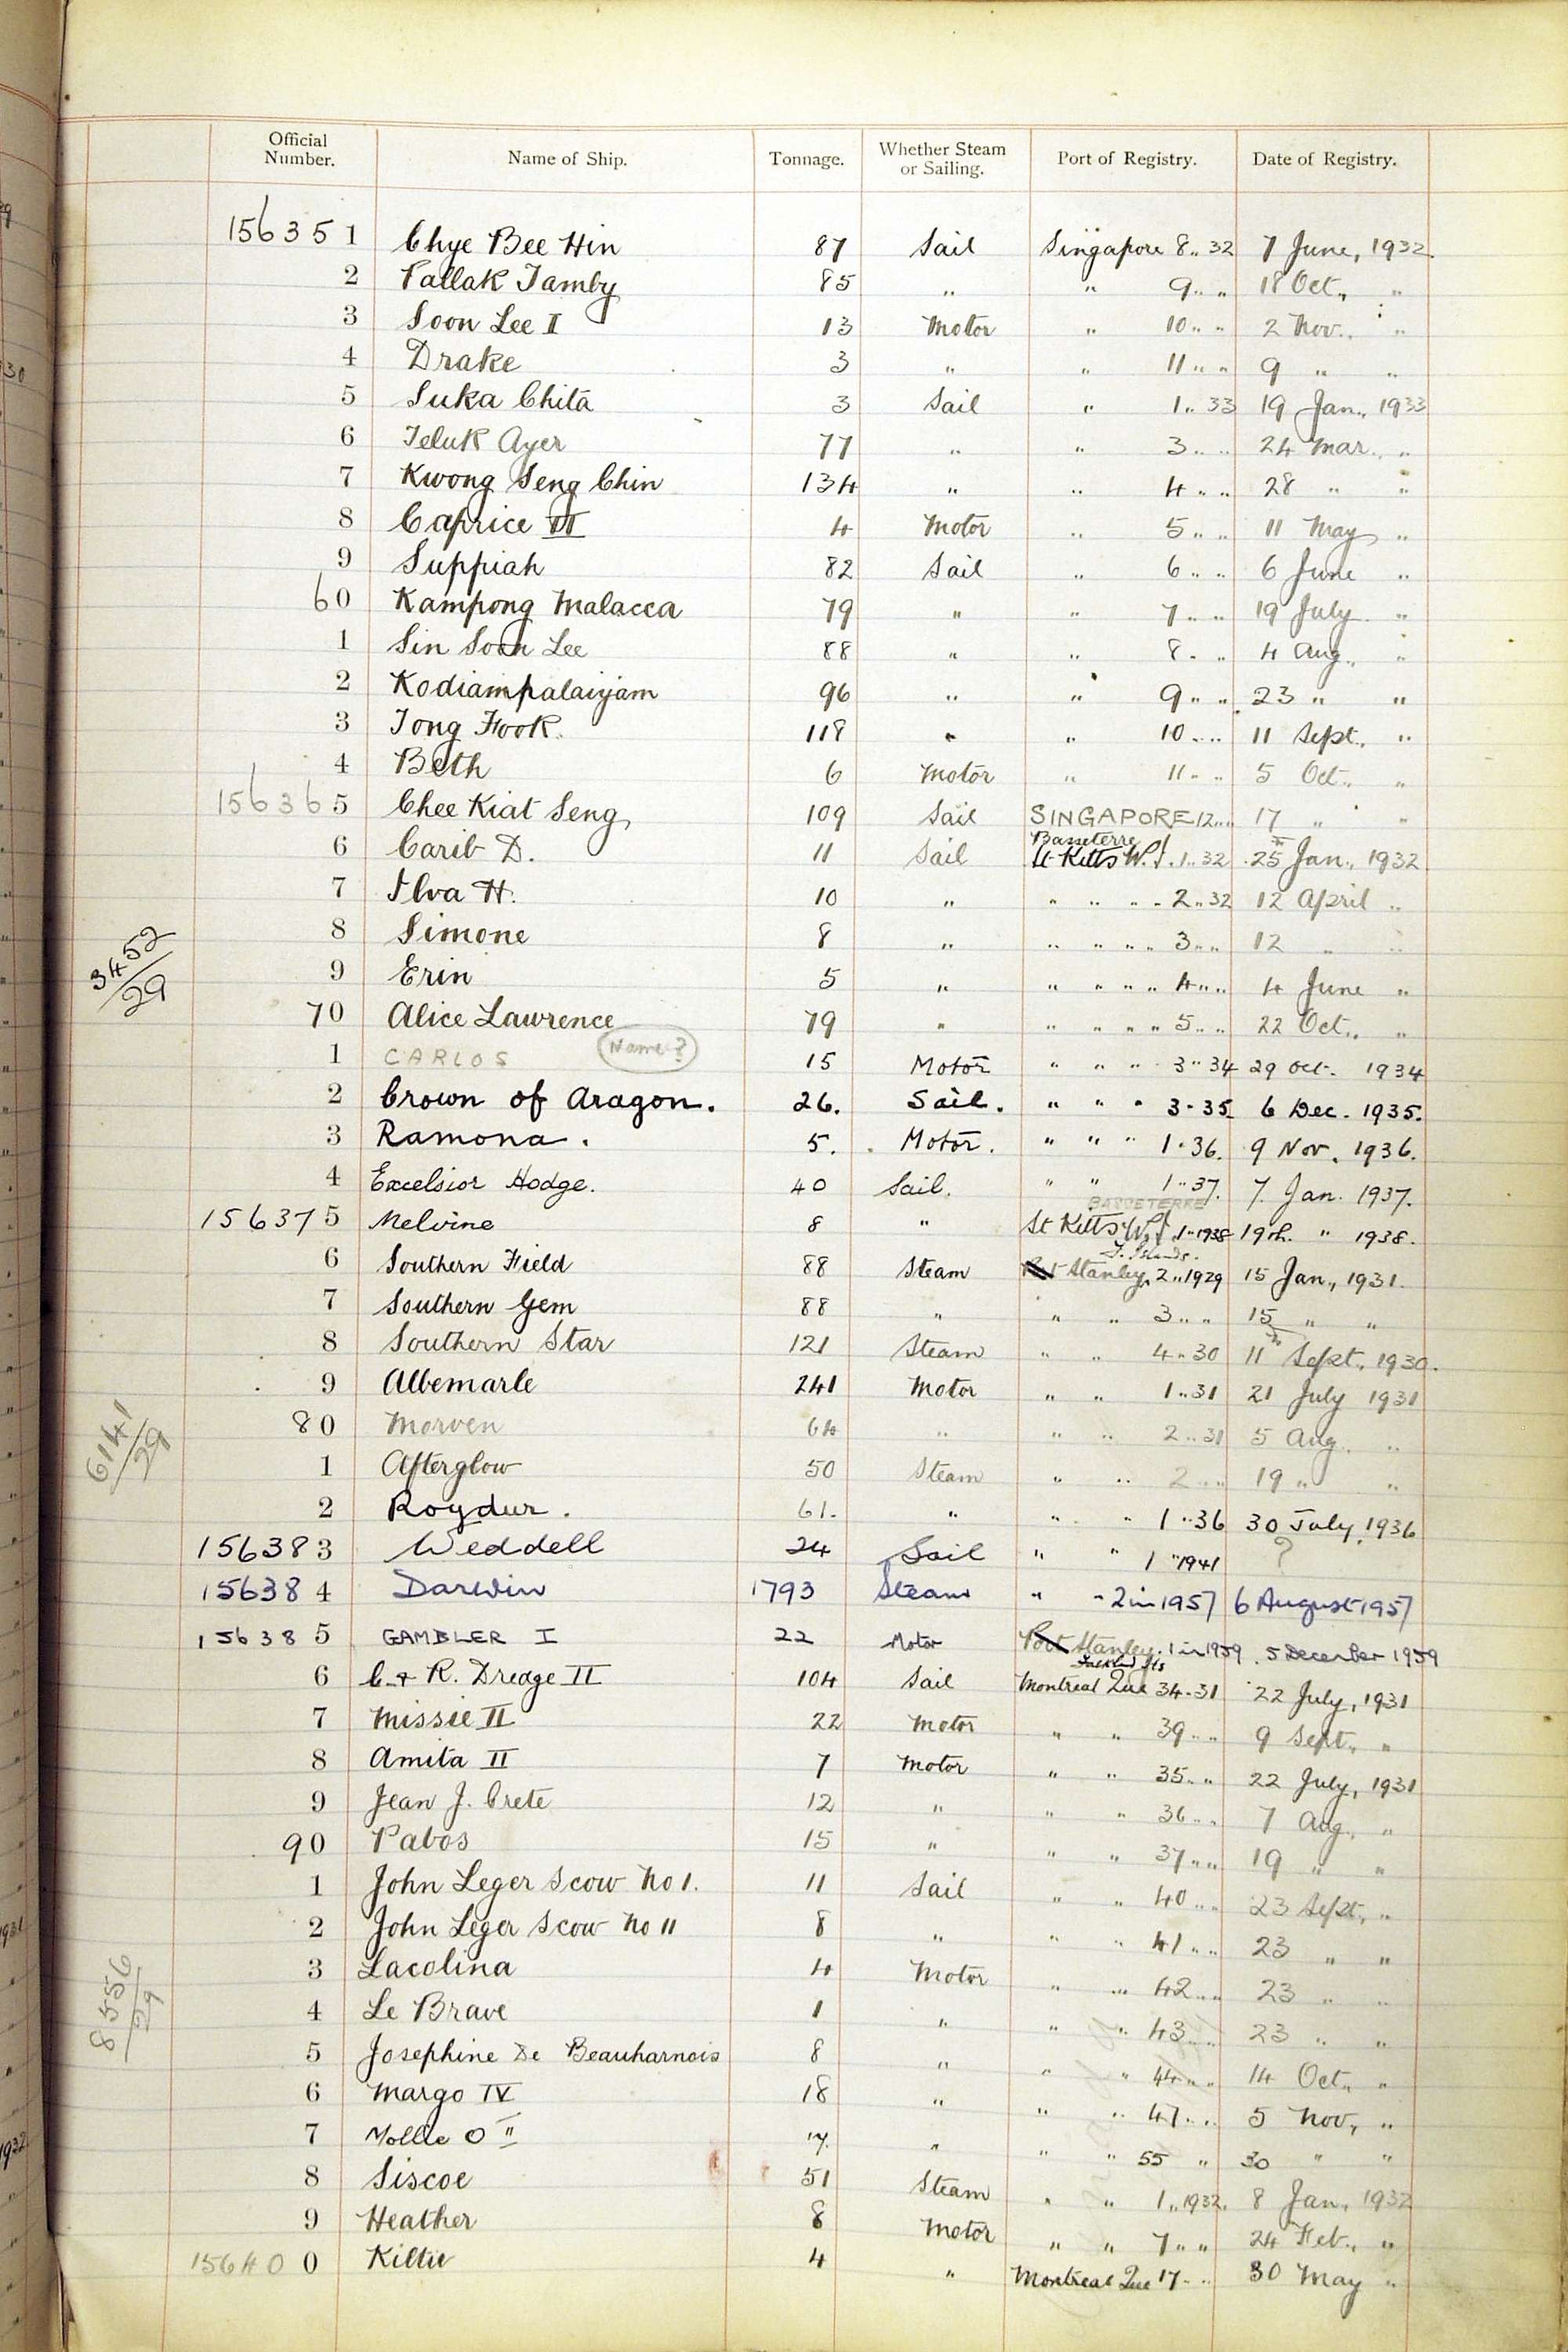 Official Number. Name of Ship. Tonnage. Whether Steam or Sailing. Port of Registry. Date of Registry.
156351 Chye Bee Hin 87 Sail Singapore 8 „ 32 7 June, 1932.
2 Pallak Tamby 85 „ „ 9 „ „ 18 Oct., „
3 Soon Lee I 13 Motor „ 10 „ „ 2 Nov., „
4 Drake 3 „ „ 11 „ „ 9 „ „
5 Suka Chita 3 Sail „ 1 „ 33 19 Jan., 1933
6 Teluk Ayer 77 „ „ 3 „ „ 24 Mar., „
7 Kwong Seng Chin 134 „ „ 4 „ „ 28 „ „
8 Caprice III 4 Motor „ 5 „ „ 11 May „
9 Suppiah 82 Sail „ 6 „ „ 6 June „
60 Kampong Malacca 79 „ „ 7 „ „ 19 July „
1 Sin Soon Lee 88 „ „ 8 „ „ 4 Aug., „
2 Kodiampalaiyam 96 „ „ 9 „ „ 23 „ „
3 Tong Hook 118 „ „ 10 „ „ 11 Sept., „
4 Beth 6 Motor „ 11 „ „ 5 Oct., „
156365 Chee Kiat Seng 109 Sail SINGAPORE 12 „ „ 17 „ „
6 Carib D. 11 Sail Basseterre St Kitts W.I. 1 „ 32 25th Jan., 1932
7 Ilva H. 10 „ „ „ „ „ 2 „ 32 12 April „
8 Simone 8 „ „ „ „ „ 3 „ „ 12 „ „
9 Erin 5 „ „ „ „ „ 4 „ „ 4 June „
70 Alice Lawrence 79 „ „ „ „ „ 5 „ „ 22 Oct., „
1 CARLOS Name? 15 Motor „ „ „ 3 „ 34 29 Oct. 1934
2 Crown of Aragon. 26. Sail. „ „ „ 3 „ 35 6 Dec. 1935.
3 Ramona. 5. Motor. „ „ „ 1 „ 36. 9 Nov. 1936.
4 Excelsior Hodge. 40 Sail. „ „ 1 „ 37. 7 Jan. 1937.
156375 Melvine 8 „ BASSETERRE St Kitts W.I. 1 „ 1938 19th. „ 1938.
6 Southern Field 88 Steam Port Stanley, F. Islands. 2 „ 1929 15 Jan., 1931.
7 Southern Gem 88 „ „ „ 3 „ „ 15 „ „
8 Southern Star 121 Steam „ „ 4 „ 30 11th Sept., 1930.
9 Albemarle 241 Motor „ „ 1 „ 31 21 July 1931
80 Morven 64 „ „ „ 2 „ 31 5 Aug., „
1 Afterglow 50 Steam „ „ 2 „ „ 19 „ „
2 Roydur. 61. „ „ „ 1 „ 36 30 July, 1936
156383 Weddell 24 Sail „ „ 1 „ 1941 ?
156384 Darwin 1793 Steam „ „ 2 in 1957 6 August 1957
156385 GAMBLER I 22 Motor Port Stanley. Falkland Is 1 in 1959. 5 December 1959
6 C. & R. Dredge II 104 Sail Montreal Que 34 „ 31 22 July, 1931
7 Missie II 22 Motor „ „ 39 „ „ 9 Sept., „
8 Amita II 7 Motor „ „ 35 „ „ 22 July, 1931
9 Jean J. Crete 12 „ „ „ 36 „ „ 7 Aug., „
90 Pabos 15 „ „ „ 37 „ „ 19 „ „
1 John Leger Scow No 1. 11 Sail „ „ 40 „ „ 23 Sept., „
2 John Leger Scow No 11 8 „ „ „ 41 „ „ 23 „ „
3452/29
6141/29
8556/29
3 Lacolina 4 Motor „ „ 42 „ „ 23 „ „
4 Le Brave 1 „ „ „ 43 „ „ 23 „ „
5 Josephine De Beauharnois 8 „ „ „ 44 „ „ 14 Oct., „
6 Margo IV 18 „ „ „ 47 „ „ 5 Nov., „
7 Mollie O II „ „ „ 55 „ 30 „ „
8 Siscoe 51 Steam „ „ 1 „ 1932. 8 Jan., 1932
9 Heather 8 Motor „ „ 7 „ „ 24 Feb., „
156400 Kiltie 4 „ Montreal Que 17 „ „ 30 May „